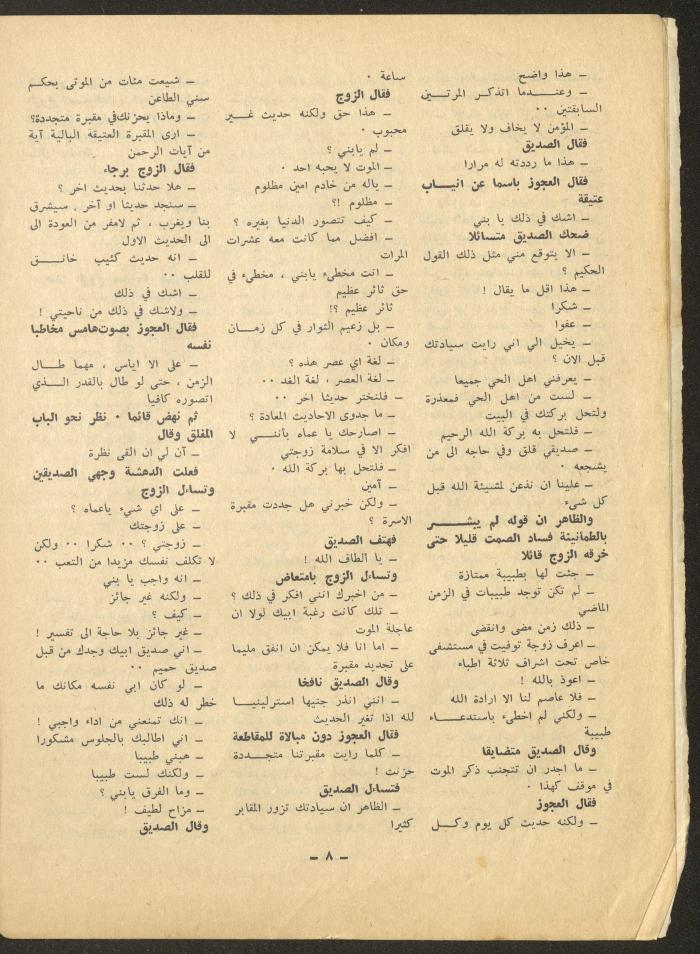 ـ هذا واضح
ـ وعندما اتذكر المرتين
السابقتين ٠٠
ـ المؤمن لا يخاف ولا يقلق
فقال الصديق
ـ هذا ما رددته له مرارا
فقال العجوز باسما عن انياب
عتيقة
ـ اشك في ذلك يا بني
ضحك الصديق متسائلا
ـ الا يتوقع مني مثل ذلك القول
الحكيم ؟
ـ هذا اقل ما يقال !
ـ شكرا
ـ عفوا
ـ يخيل الي اني رايت سيادتك
قبل الان ؟
ـ يعرفني اهل الحي جميعا
ـ لست من اهل الحي فمعذرة
ولتحل بركتك في البيت
ـ فلتحل به بركة الله الرحيم
ـ صديقي قلق وفي حاجه الى من
يشجعه ٠
ـ علينا ان نذعن لمشيئة الله قبل
كل شىء
والظاهر ان قوله لم يبشر
بالطمانينة فساد الصمت قليلا حتى
خرقه الزوج قائلا
ـ جئت لها بطبيبة ممتازة
ـ لم تكن توجد طبيبات في الزمن
الماضي
ـ ذلك زمن مضى وانقضى
ـ اعرف زوجة توفيت في مستشفى
خاص تحت اشراف ثلاثة اطباء
ـ اعوذ بالله !
ـ فلا عاصم لنا الا ارادة الله
ـ ولكني لم اخطىء باستدعاء
طبيبة
وقال الصديق متضايقا
ـ ما اجدر ان تتجنب ذكر الموت
في موقف كهذا ٠
فقال العجوز
ـ ولكنه حديث كل يوم وكل
ساعة ٠
فقال الزوج
ـ هذا حق ولكنه حديث غير
محبوب ٠
ـ لم يابني ؟
ـ الموت لا يحبه احد ٠
ـ ياله من خادم امين مظلوم
ـ مظلوم ؟!
ـ كيف تتصور الدنيا بغيره ؟
ـ افضل مما كانت معه عشرات
المرات
ـ انت مخطىء يابني ، مخطىء في
حق ثائر عظيم
ثائر عظيم ؟!
ـ بل زعيم الثوار في كل زمان
ومكان ٠
ـ لغة اي عصر هذه ؟
ـ لغة العصر ، لغة الغد ٠٠
ـ فلنختر حديثا اخر ٠٠
ـ ما جدوى الاحاديث المعادة ؟
ـ اصارحك يا عماه بأنني لا
افكر الا في سلامة زوجتي
ـ فلتحل بها بركة الله ٠
ـ آمين
ـ ولكن خبرني هل جددت مقبرة
الاسرة ؟
فهتف الصديق
ـ يا الطاف الله !
وتساءل الزوج بامتعاض
ـ من اخبرك انني افكر في ذلك ؟
ـ تلك كانت رغبة ابيك لولا ان
عاجلة الموت
ـ اما انا فلا يمكن ان انفق مليما
على تجديد مقبرة
وقال الصديق نافخا
ـ انني انذر جنيها استرلينيا
لله اذا تغير الحديث
فقال العجوز دون مبالاة للمقاطعة
ـ كلما رايت مقبرتنا متجددة
حزنت !
فتساءل الصديق
ـ الظاهر ان سيادتك تزور المقابر
كثيرا
ـ شيعت مئات من الموتى بحكم
سني الطاعن
ـ وماذا يحزنك في مقبرة متجددة؟
ـ ارى المقبرة العتيقة البالية آية
من آيات الرحمن
فقال الزوج برجاء
ـ هلا حدثنا بحديث اخر ؟
ـ سنجد حديثا او آخر . سيشرق
بنا ويغرب ، ثم لامفر من العودة الى
الى الحديث الاول
ـ انه حديث كئيب خانق
للقلب ٠٠
ـ اشك في ذلك
ـ ولاشك في ذلك من ناحيتي !
فقال العجوز بصوت هامس مخاطبا
نفسه
ـ على الا ايأس ، مهما طال
الزمن ، حتى لو طال بالقدر الذي
اتصوره كافيا
ثم نهض قائما ٠ نظر نحو الباب
المغلق وقال
ـ آن لي ان القى نظرة
فعلت الدهشة وجهي الصديقين
وتساءل الزوج
ـ على اي شيء ياعماه ؟
ـ على زوجتك
ـ زوجتي ؟ ٠٠ شكرا ٠٠ ولكن
لا تكلف نفسك مزيدا من التعب ٠٠
ـ انه واجب يا بني
ـ ولكنه غير جائز
ـ كيف ؟
ـ غير جائز بلا حاجة الى تفسير !
ـ اني صديق ابيك وجدك من قبل
صديق حميم ٠٠
ـ لو كان ابي نفسه مكانك ما
خطر له ذلك
ـ انك تمنعني من اداء واجبي !
ـ اني اطالبك بالجلوس مشكورا
ـ هبني طبيبا
ـ ولكنك لست طبيبا
ـ وما الفرق يابني ؟
ـ مزاح لطيف !
وقال الصديق
ـ ٨ ـ